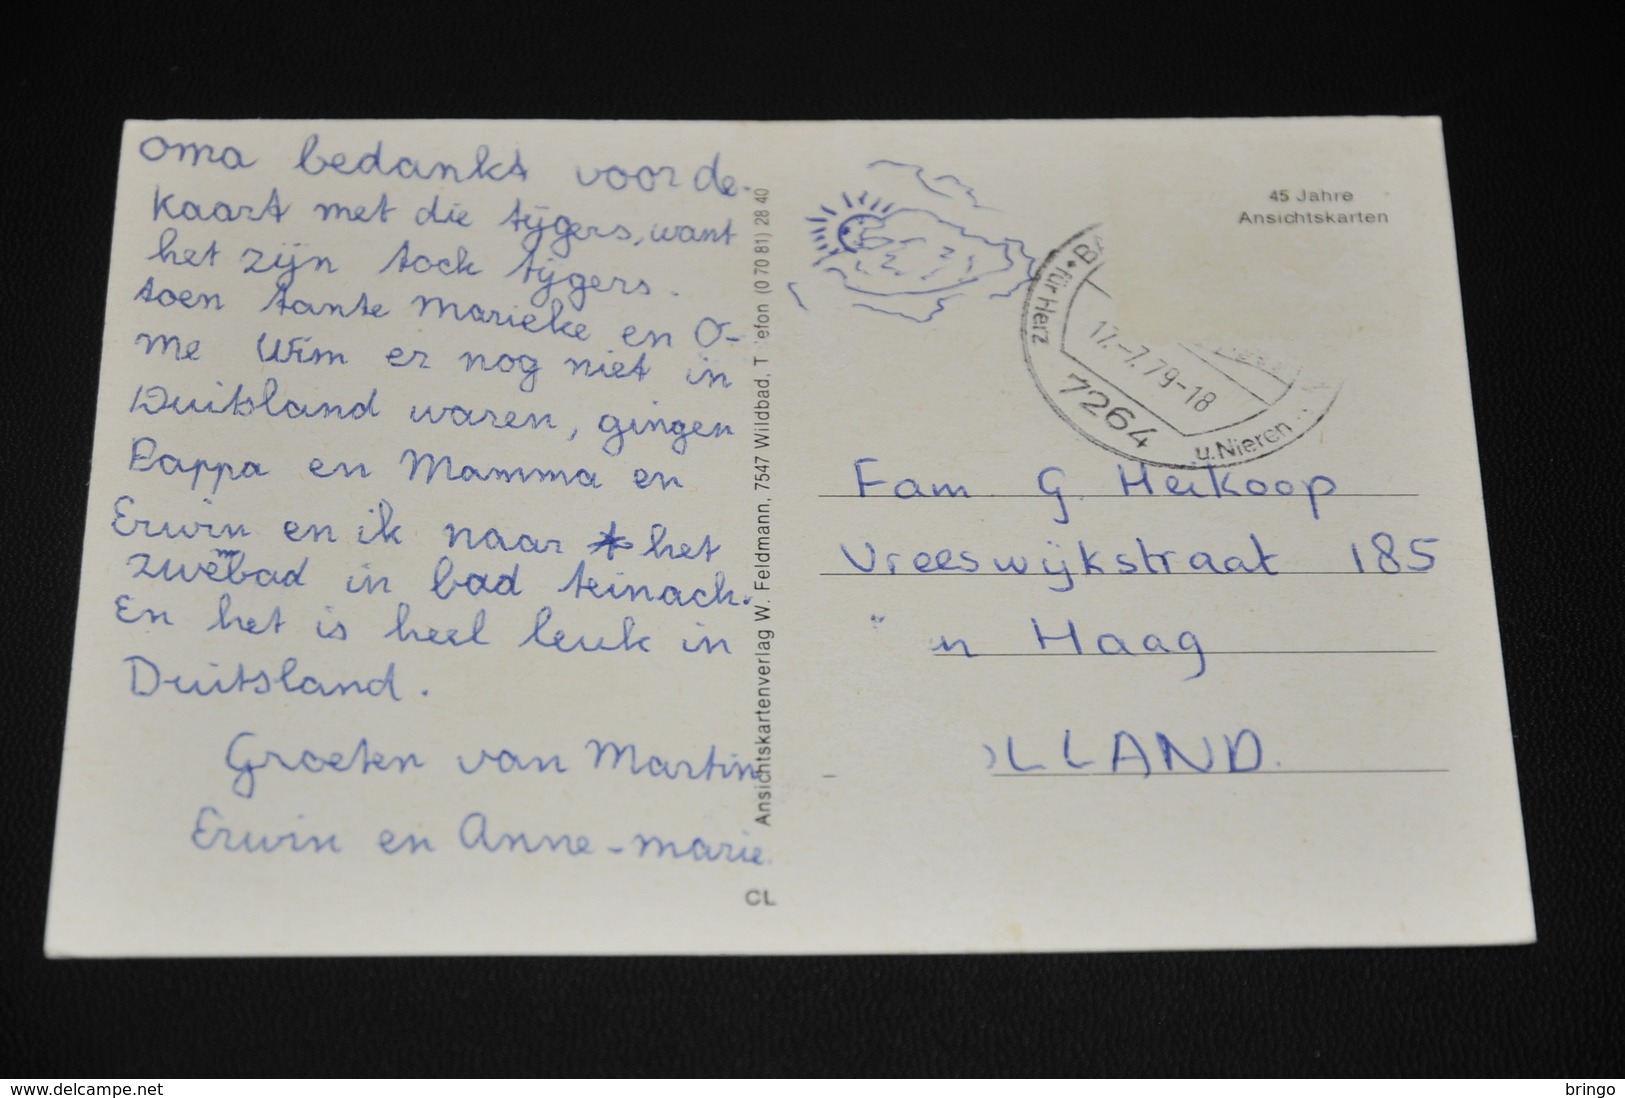 oma bedankt voor de
kaart met die tijgers, want
het zijn toch tijgers.
toen tante Marieke en O-
me Wim er nog niet in
Duitsland waren, gingen
Pappa en Mamma en
Erwin en ik naar het
zwembad in bad teinach.
En het is heel leuk in
Duitsland.
Groeten van Martin
Erwin en Anne-marie.
CL
Ansichtskartenverlag W. Feldmann, 7547 Wildbad, T efon (0 70 81) 28 40
45 Jahre
Ansichtskarten
für Herz
17.-7.79-18
7264
u. Nieren
Fam G. Heikoop
Vreeswijkstraat 185
n Haag
LLAND.
www.delcampe.net
bringo